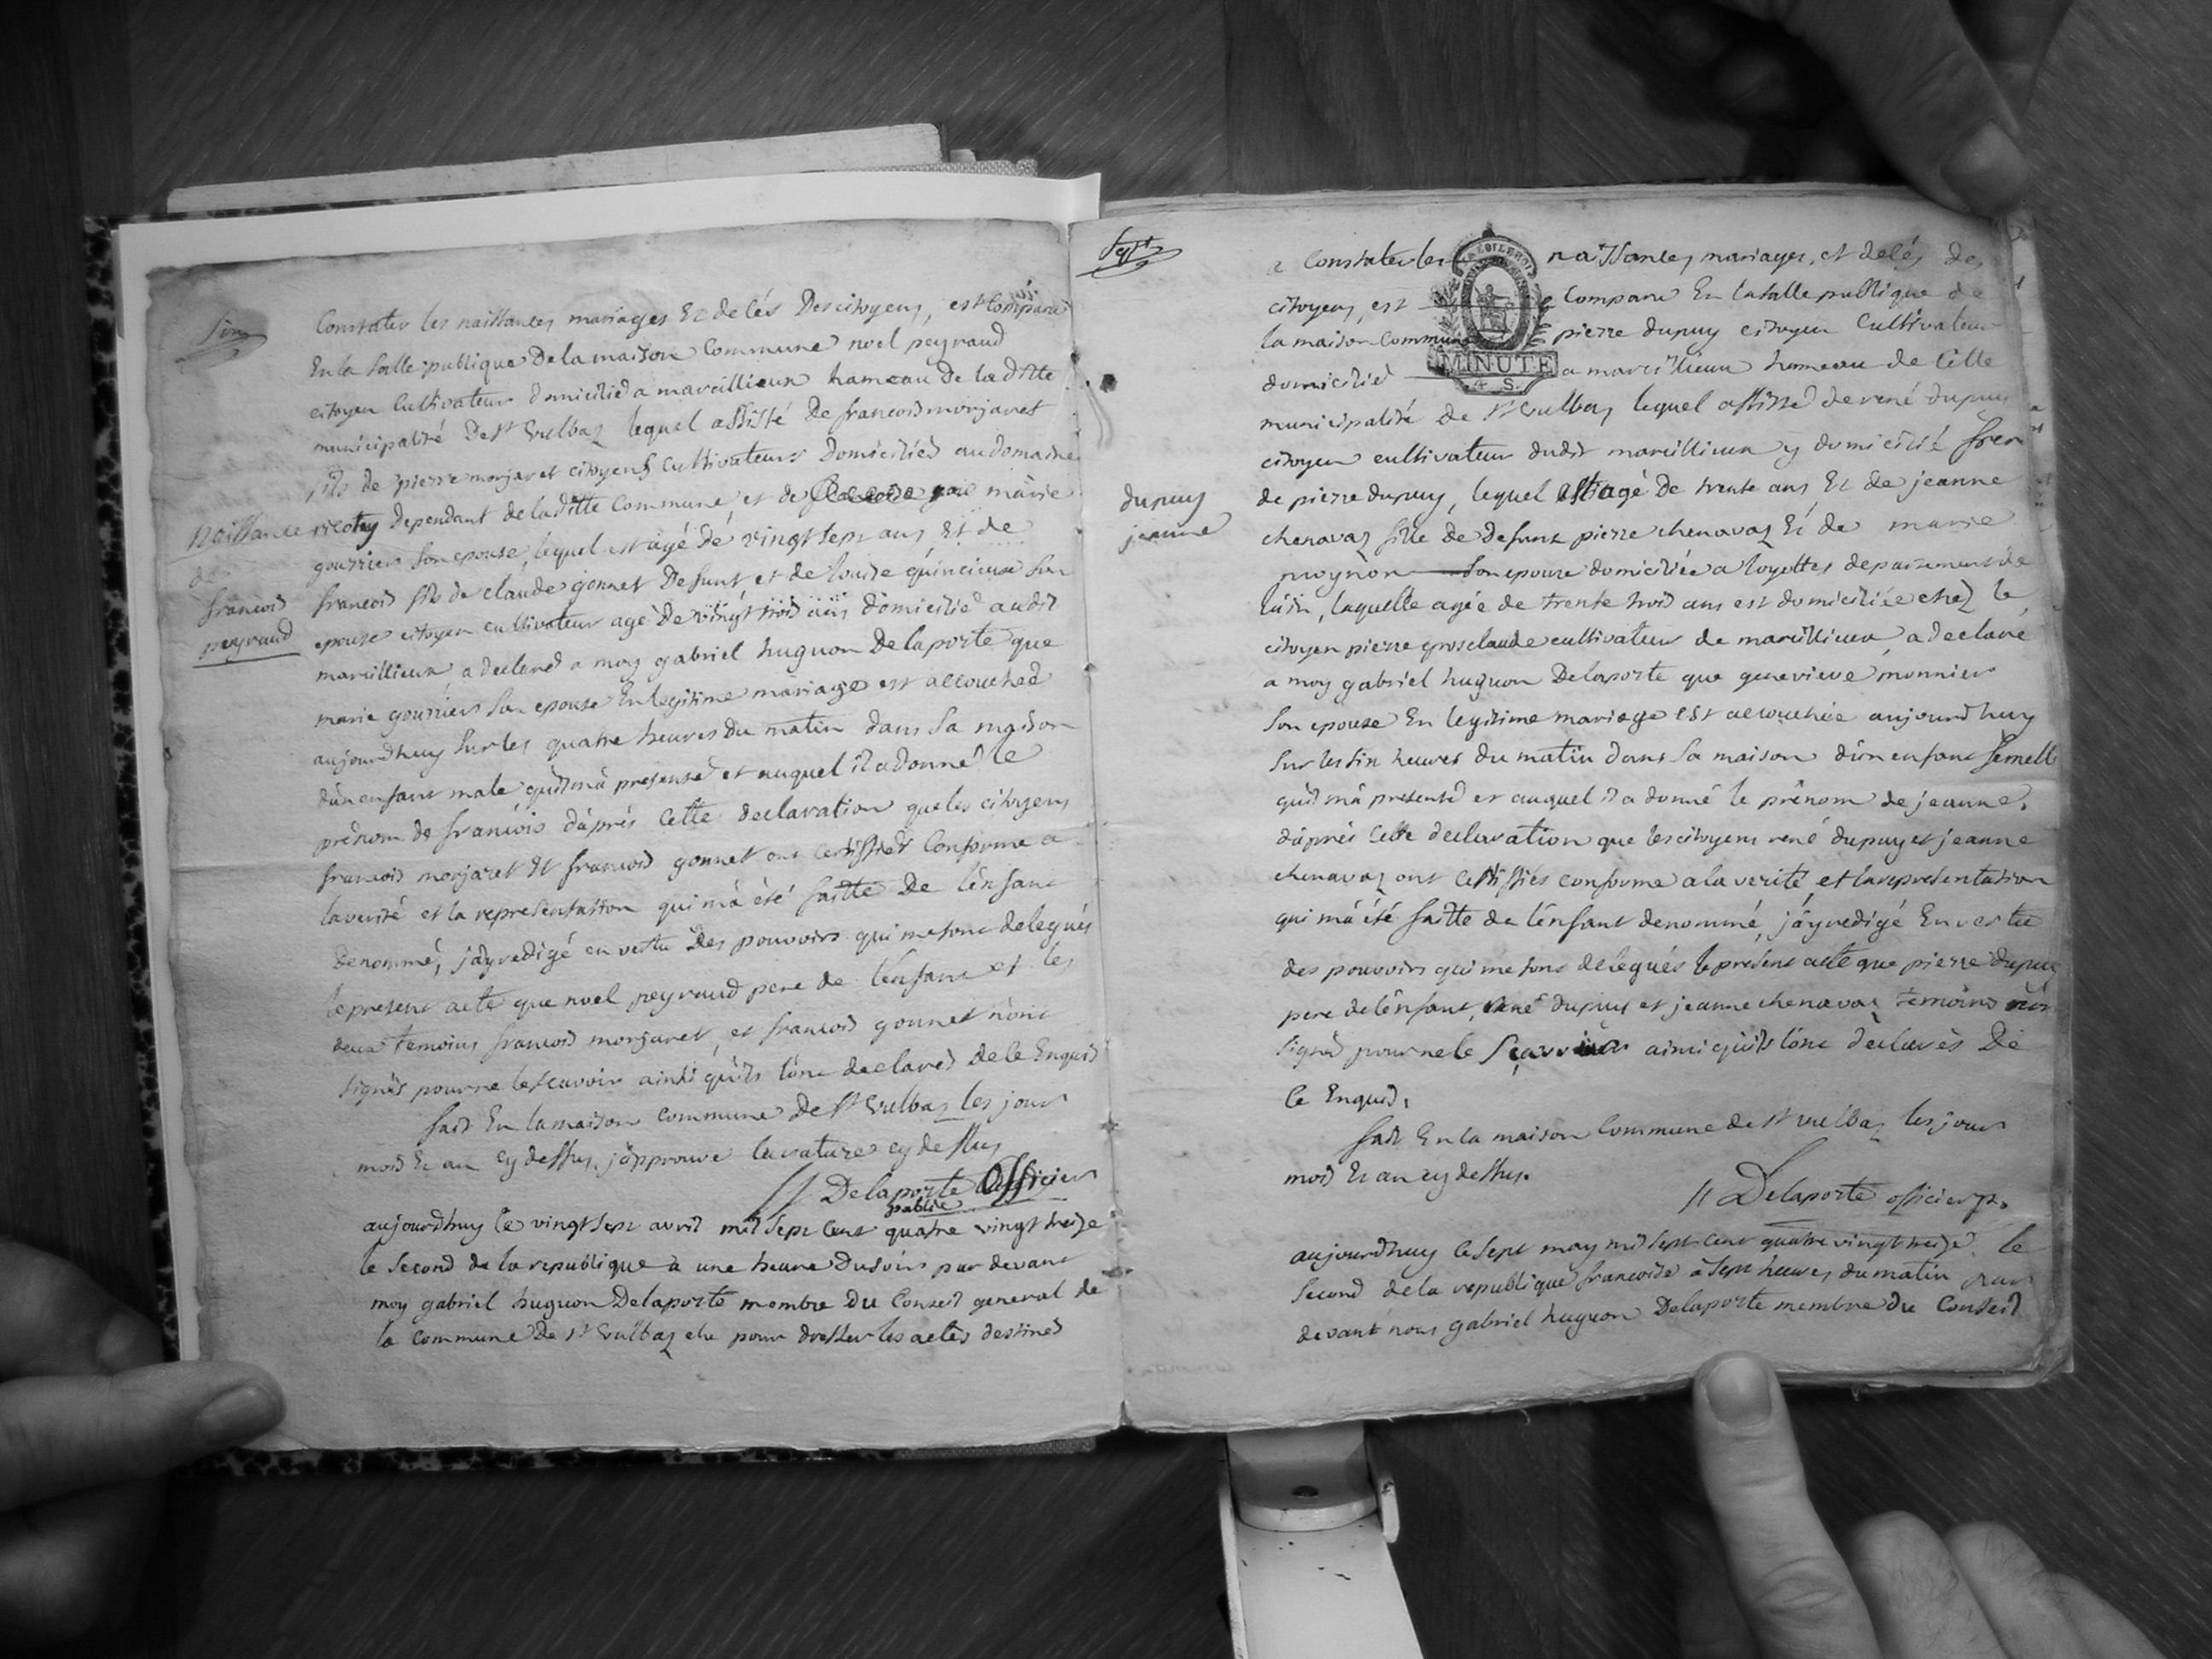 Six
Constater les naissances mariages Et decés Des citoyens, est Comparu
En la salle publique De la maison Commune noel peyraud
citoyen Cultivateur domicilié a marcillieux hameau De la ditte
municipalité De St Vulbaz lequel assisté De francois morjaret
fils de pierre morjaret citoyens cultivateurs Domiciliés au domaine
Naissance
de
francois
peyraud
dependant de la ditte Commune, et de marie
gourrier son epouse, lequel est agé de vingt sept ans, Et de
francois fils de claude gonnet Defunt et de Louise quincieux son
epouse citoyen cultivateur agé De vingt trois ans domicilié audit
marcillieux, a declaré a moy gabriel huguon Delaporte que
marie gourrier son epouse En legitime mariage est accouchée
aujourdhuy sur les quatre heures Du matin dans sa maison
d'un enfant male qu'il m'a presenté et auquel il a donné le
prénom de francois d'après cette declaration que les citoyens
francois morjaret Et francois gonnet ont certiffiés Conforme a
la verité et la representation qui m'a été faitte De l'enfant
denommé, j'ay redigé en vertu Des pouvoirs qui me sont delegués
le present acte que noel peyraud pere de l'enfant et les
deux temoins francois morjaret, et francois gonnet n'ont
signés pour ne le scavoir ainsi qu'ils l'ont declarés de ce Enquis
fait En la maison Commune de St Vulbaz les jour
mois Et an cy dessus. j'approuve la rature cy dessus
Delaporte Officier
public
aujourdhuy le vingt sept avril mil sept cent quatre vingt treize
le second de la republique a une heure Du soir par devant
moy gabriel huguon Delaporte membre Du Conseil general de
la Commune De St Vulbaz elu pour dresser les actes destinés
Sept
a Constater les naissances, mariages, et decés des
citoyens, est Comparu En la salle publique de
la maison Commune pierre dupuy citoyen Cultivateur
domicilié a marcillieux hameau de Cette
MINUTE
4 S.
municipalité de St Vulbaz lequel assisté de rené dupuy
citoyen cultivateur dudit marcillieux y domicilié frere
dupuy
jeanne
de pierre dupuy, lequel est agé de trente ans Et de jeanne
chenavaz fille de defunt pierre chenavaz Et de marie
moynon son epouse domiciliée a loyettes departement de
l'ain, laquelle agée de trente trois ans est domiciliée chez le
citoyen pierre grosclaude cultivateur de marcillieux, a declaré
a moy gabriel huguon Delaporte que genevieve monnier
son epouse En legitime mariage est accouchée aujourdhuy
sur les six heures du matin dans sa maison d'un enfant femelle
qu'il m'a presenté et auquel il a donné le prénom de jeanne.
d'après cette declaration que les citoyens rené dupuy et jeanne
chenavaz ont certiffiés conforme a la verité, et la representation
qui m'a été faitte de l'enfant denommé, j'ay redigé En vertu
des pouvoirs qui me sont delegués le present acte que pierre dupuy
pere de l'enfant, rené dupuy et jeanne chenavaz temoins n'ont
signés pour ne le sçavoir ainsi qu'ils l'ont declarés De
ce Enquis.
fait En la maison Commune de St vulbaz les jour
mois Et an cy dessus.
Delaporte officier p.
aujourdhuy le sept may mil sept cent quatre vingt treize le
second de la republique francoise a sept heures du matin par
devant nous gabriel huguon Delaporte membre du Conseil